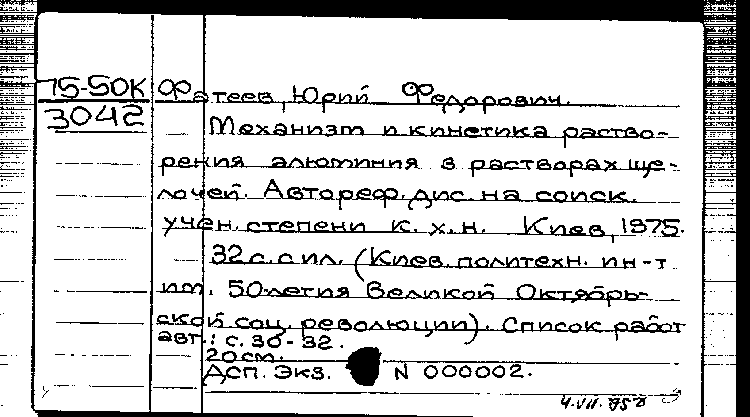 75-50К
3042
Фатеев, Юрий Федорович.
Механизм и кинетика раство-
рения алюминия в растворах ще-
лочей. Автореф. дис. на соиск.
учен. степени к. х. н. Киев, 1975.
32 с. с ил. (Киев. политехн. ин-т
им. 50-летия Великой Октябрь-
ской соц. революции). Список работ
авт.: с. 30-32.
20 см.
ДСП. Экз. N 000002.